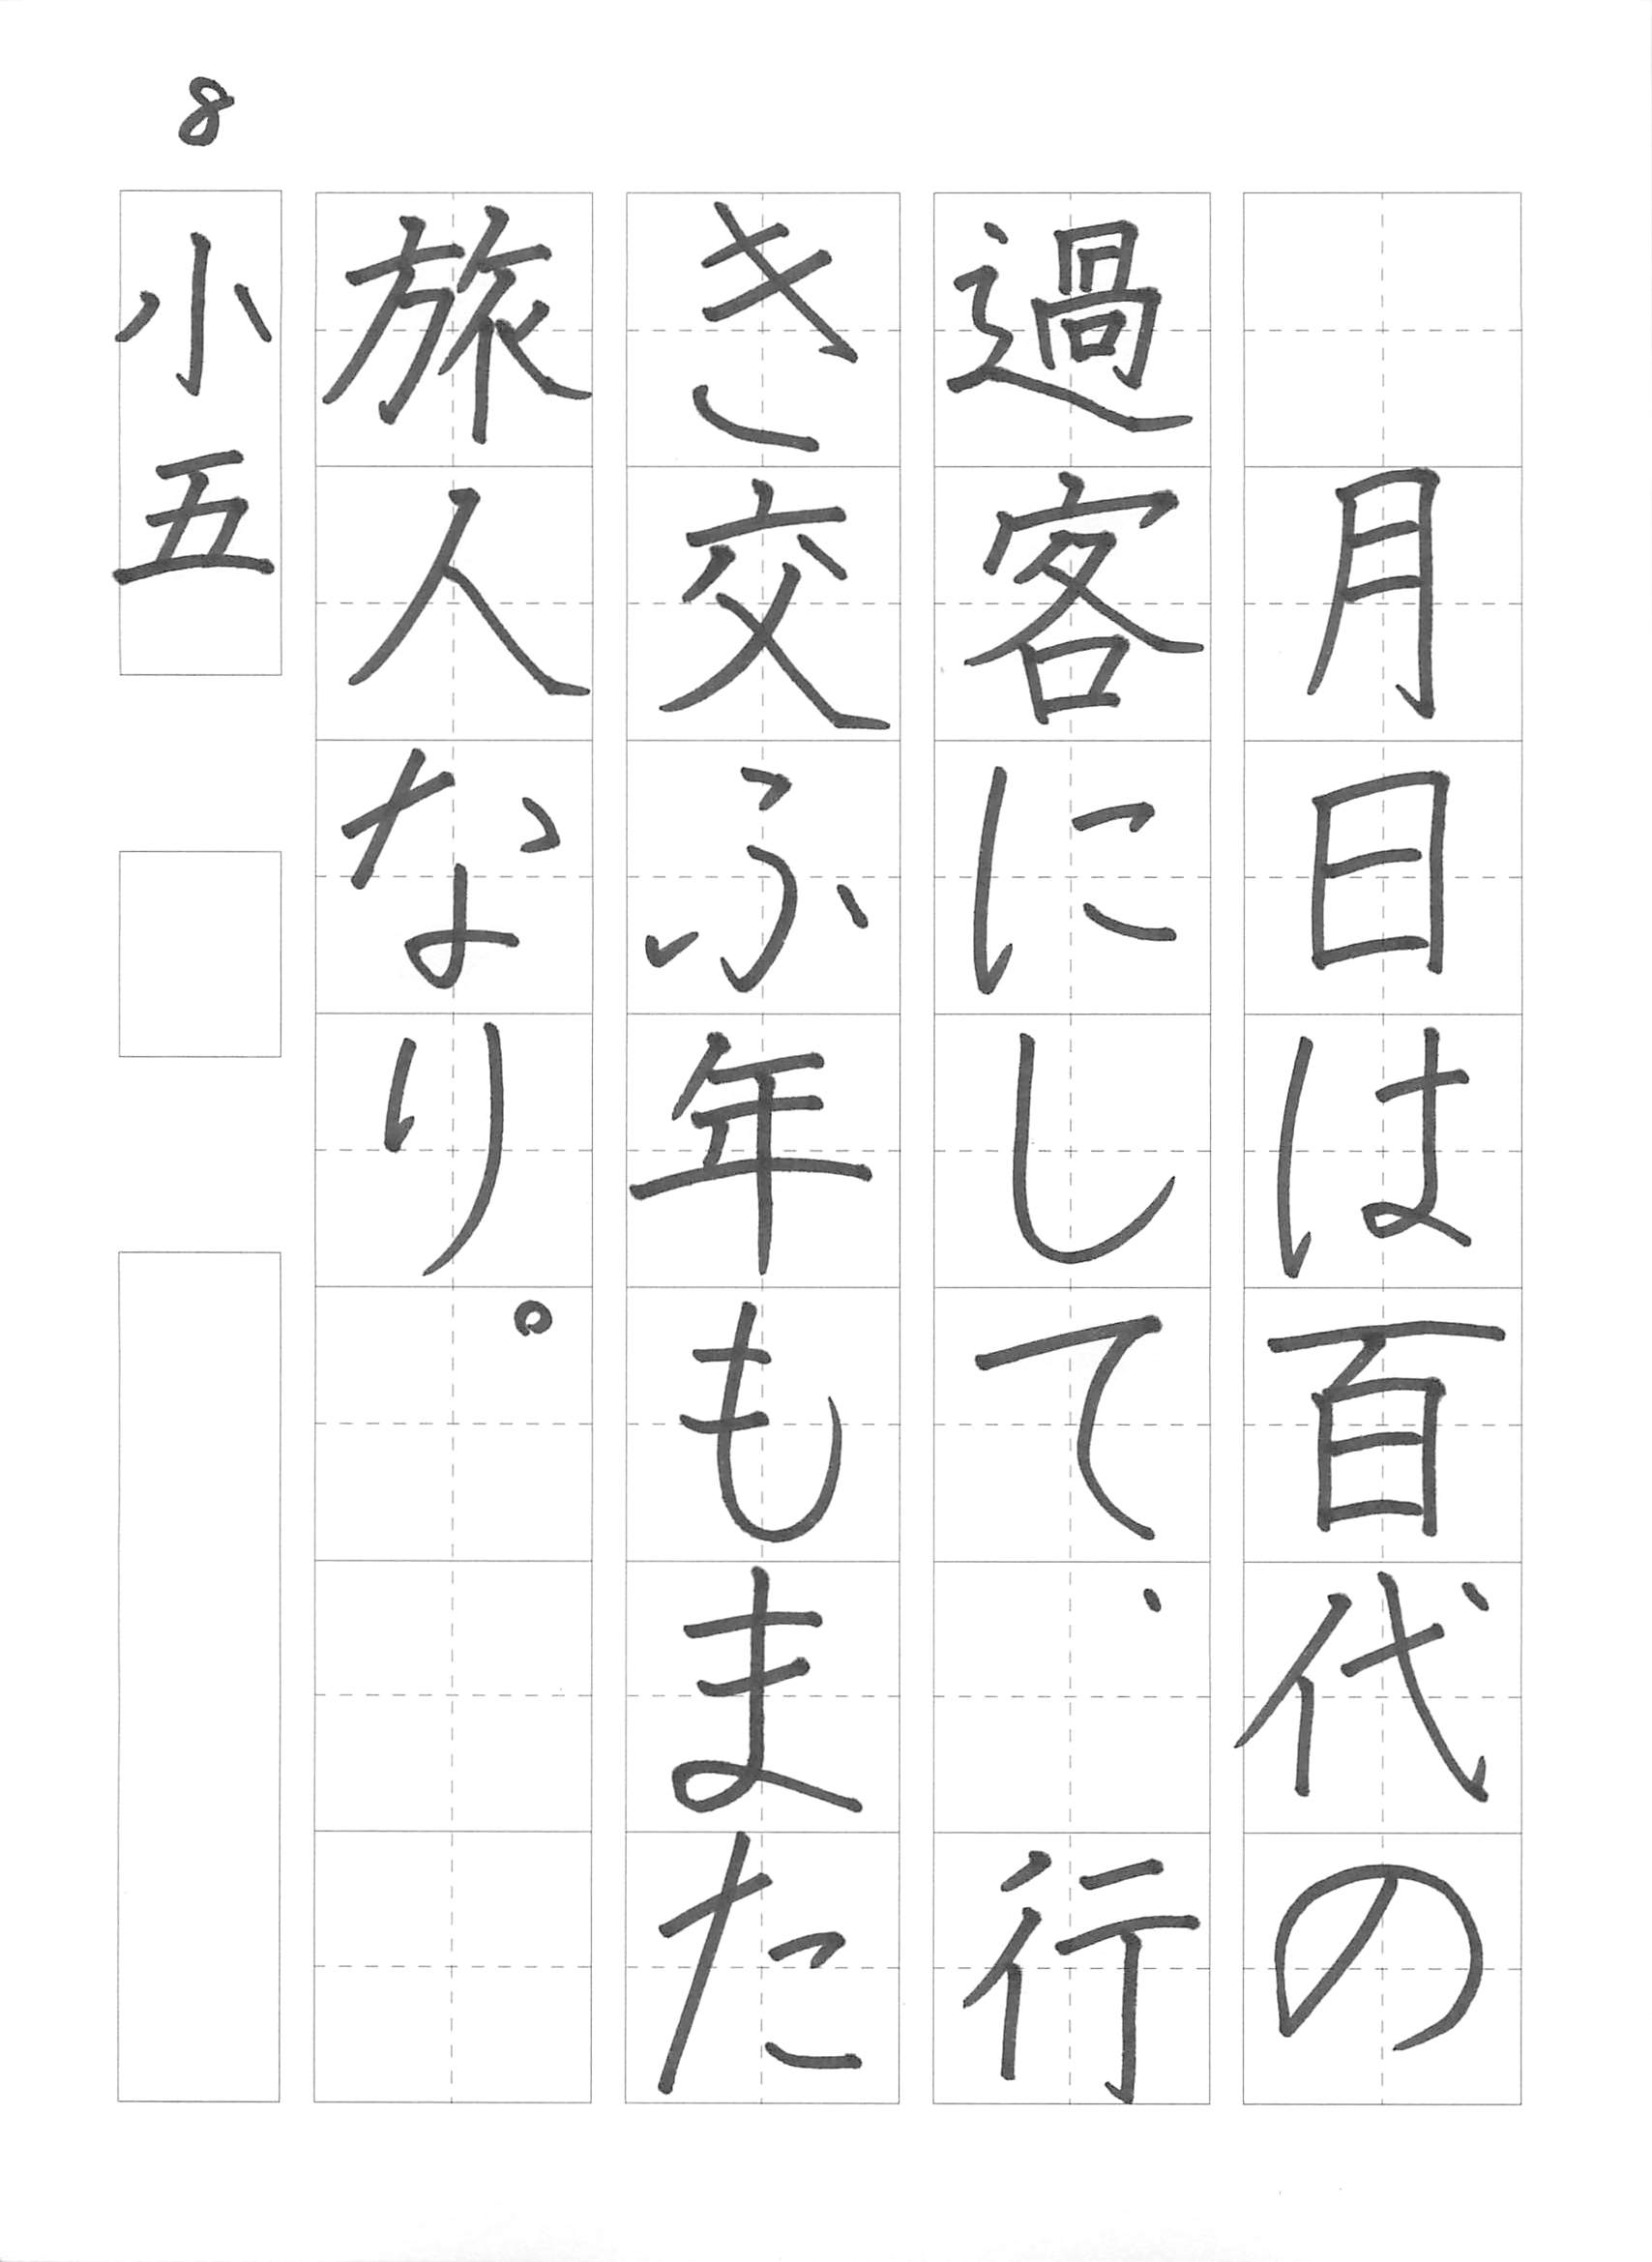 月日は百代の
過客にして、行
き交ふ年もまた
旅人なり。
小五
8